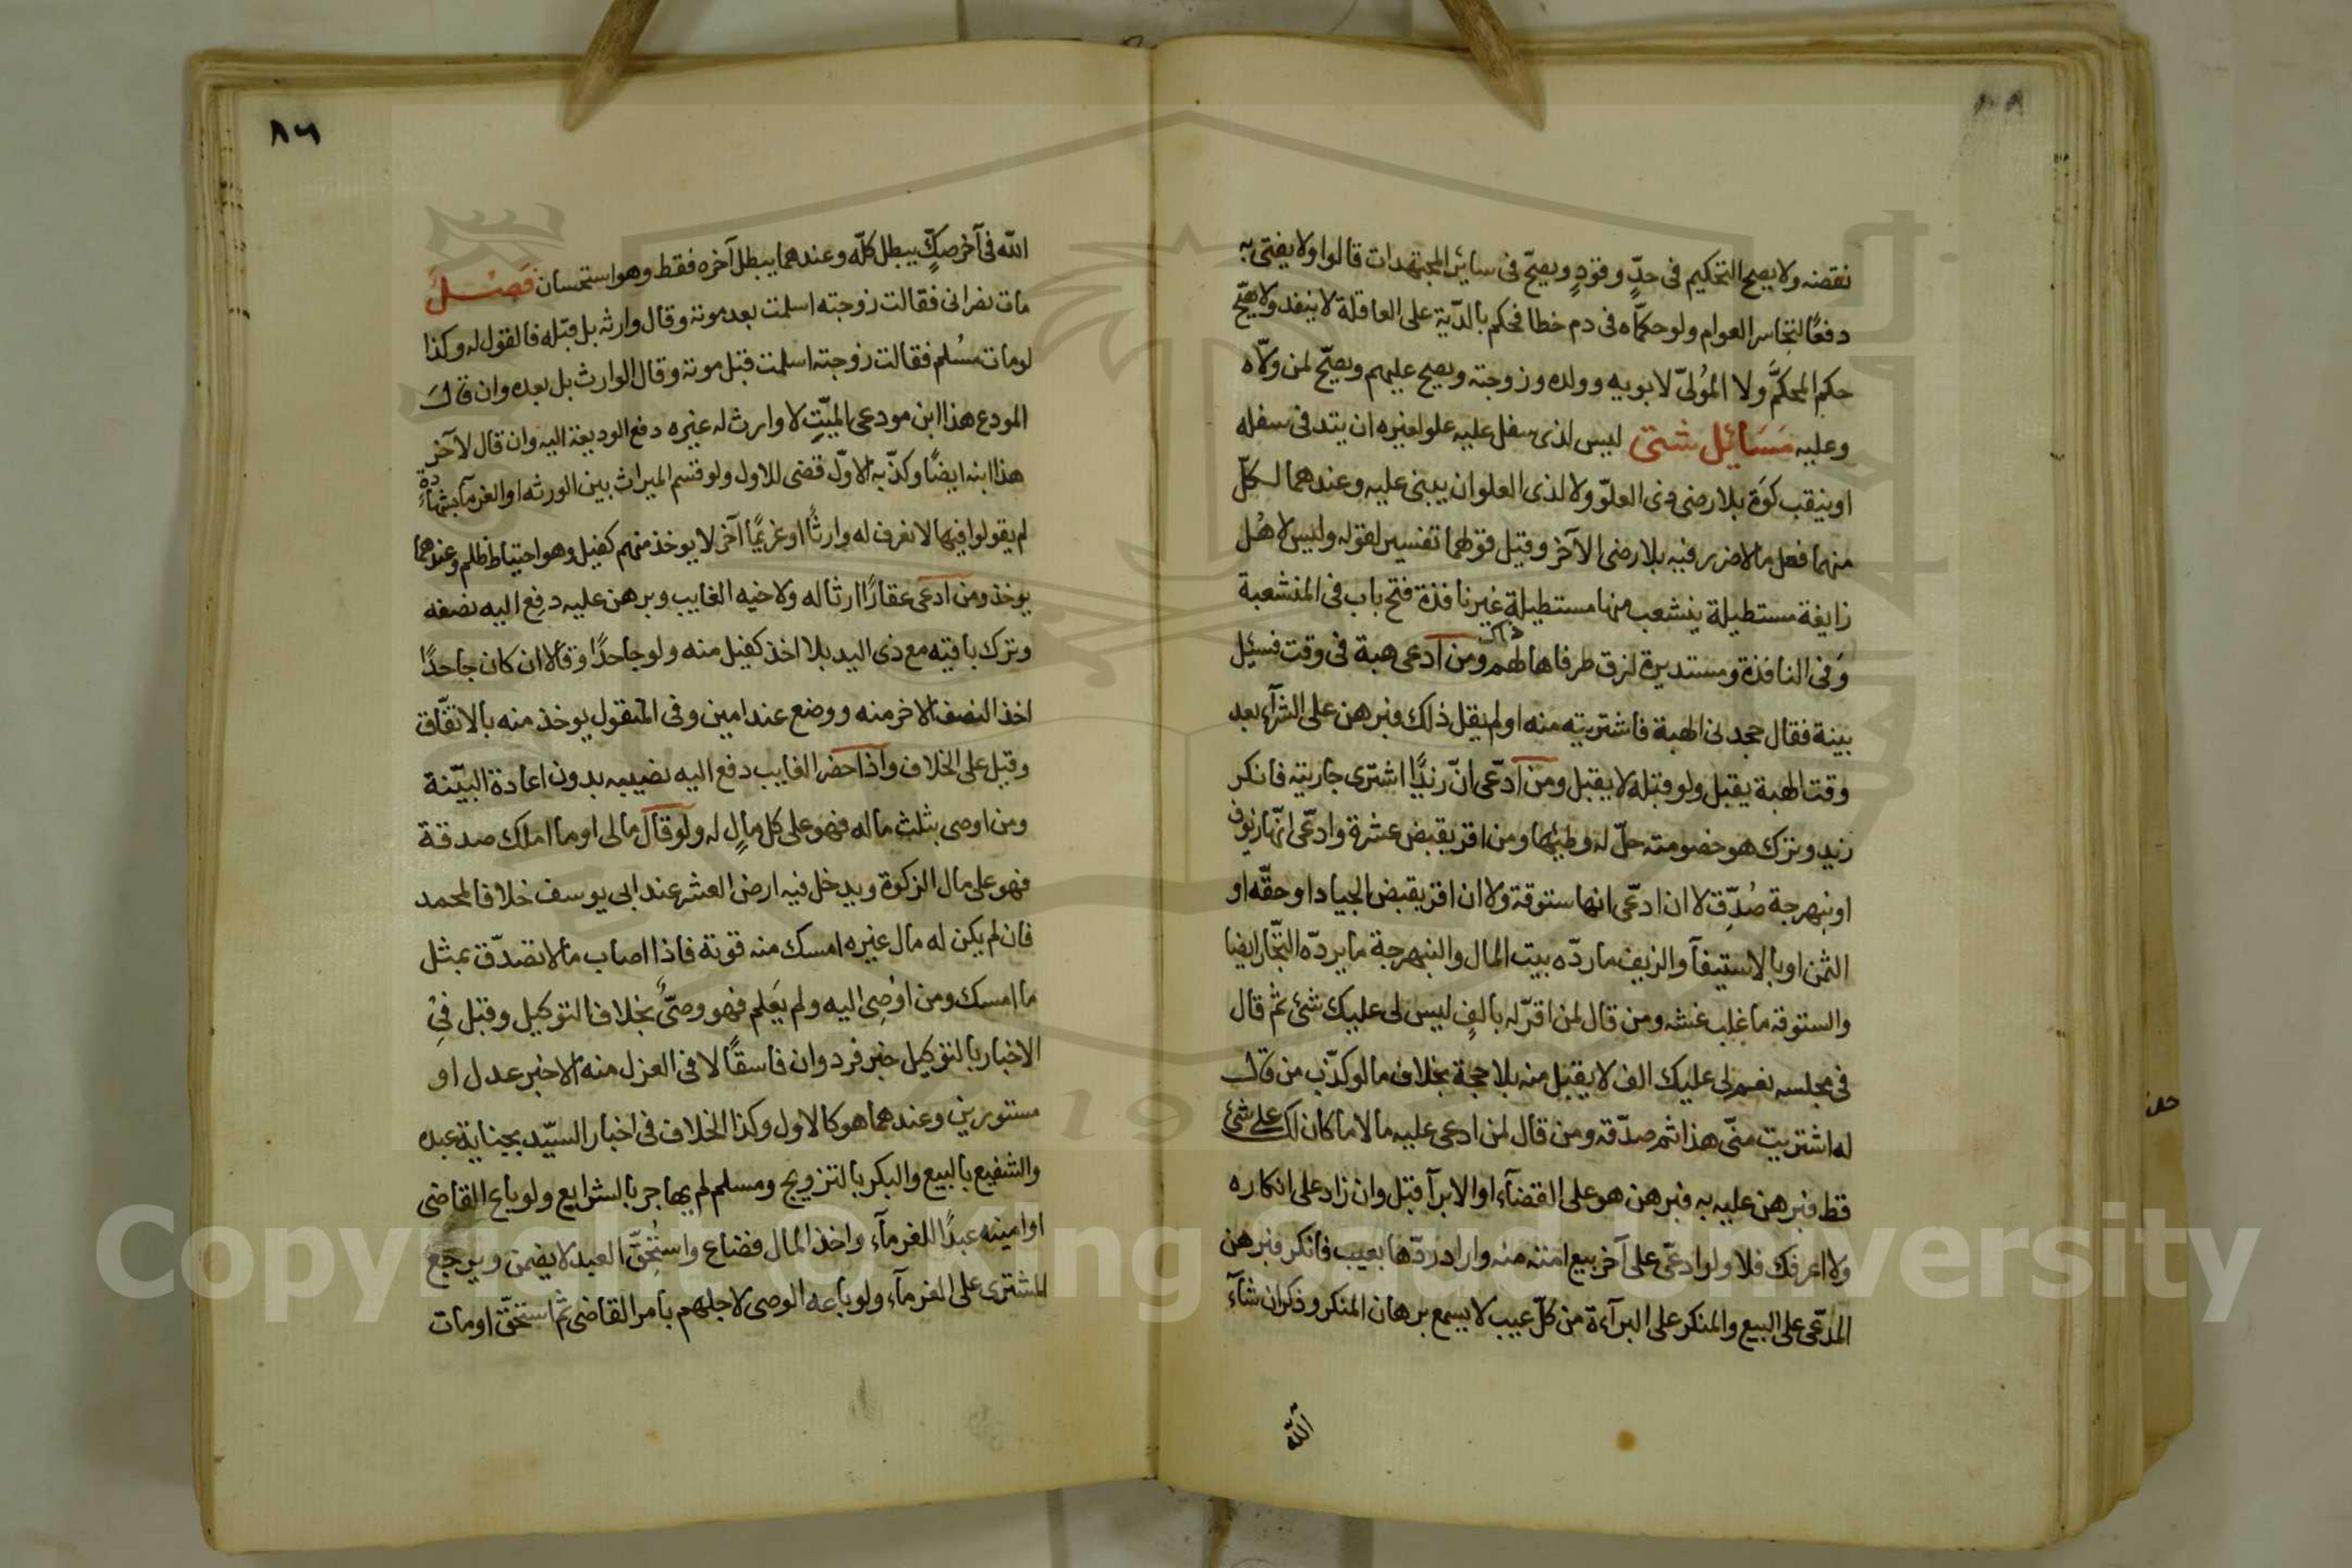 نقضه ولا يصح التحكيم فى حدٍّ وقودٍ ويصحّ فى سائر المجتهدات قالوا ولا يفتى به
دفعًا لتجاسر العوام ولو حكمّاه فى دم خطا فحكم بالدّية على العاقلة لا ينفد ولا يصحّ
حكم المحكَّم ولا المُولىّ لابويه وولده وزوجته ويصح عليهم ويصحّ لمن ولّاه
وعليه مَسَائِل شتى ليس لذى سفل عليه علو لغيره ان يتد فى سفله
او ينقب كوَة بلا رضى ذى العلوّ ولا لذى العلو ان يبنى عليه وعندهما لكلّ
منهما فعل ما لا ضرر فيه بلا رضى الآخر وقيل قولهما تفسير لقوله وليس لاهل
زايغة مستطيلة ينشعب منها مستطيلة غير نافذة فتح باب فى المنشعبة
وَفى النافذة ومستديرة لزق طرفاها لهم ذلك ومن ادعى هبة فى وقت فسئل
بينة فقال جحدنى الهبة فاشتريته منه او لم يقل ذلك فبرهن على الشرآء بعد
وقت الهبة يقبل ولو قبله لا يقبل ومن ادّعى انّ زيدًا اشترى جاريته فانكر
زيد وترك هو خصومته حلّ له وطيُها ومن اقر بقبض عشرة وادّعى انّها زيوف
او نبهرجة صُدِّق لا ان ادّعى انها ستوقة ولا ان اقر بقبض الجياد او حقّه او
الثمن او بالاستيفآ والزيف ما ردّه بيت المال والنبهرجة ما يردّه التجّار ايضا
والستوقه ما غلب غشه ومن قال لمن اقرّ له بالفٍ ليس لى عليك شئ ثم قال
فى مجلسه نعم لى عليك الف لا يقبل منه بلا حجّة بخلاف ما لو كذّب من قال
له اشتريت منّى هذا ثم صدّقه ومن قال لمن ادعى عليه مالا ما كان لك على شئ
قط فبرهن عليه به فبرهن هو على القضآء او الابرآ قبل وان زاد على انكاره
ولا اعرفك فلا ولو ادعّى على آخر بيع امته منه واراد ردّها بعيب فانكر فبرهن
المدّعى على البيع والمنكر على البرآءة من كلّ عيب لا يسمع برهان المنكر وذكر ان شآء
الله
٨٦
الله فى آخر صكٍّ يبطل كلّه وعندهما يبطل آخره فقط وهو استحسان فَصْــلٌ
مات نصرانى فقالت زوجته اسلمت بعد موته وقال وارثه بل قبله فالقول له وكذا
لو مات مسُلم فقالت زوجته اسلمت قبل موته وقال الوارث بل بعده وان قال
المودع هذا ابن مودعى الميّتِ لا وارث له غيره دفع الوديعة اليه وان قال لآخر
هذا ابنه ايضًا وكذّبه الاوّل قضى للاول ولو قسم الميراث بين الورثه او الغرمآ بشهادة
لم يقولوا فيها لا نعرف له وارثًا او غريمًا آخر لا يوخذ منهم كفيل وهو احتياط ظلم وعندهما
يوخذ ومن ادعى عقارًا ارثا له ولاخيه الغايب وبرهن عليه دفِع اليه نصفه
وترك باقيه مع ذى اليد بلا اخذ كفيل منه ولو جاحدًا وقالا ان كان جاحدًا
اخذ النصف الاخر منه ووضع عند امين وفى المنقول يوخذ منه بالاتّفاق
وقيل على الخلاف واذا حضر الغايب دفع اليه نصيبه بدون اعادة البيّنة
ومن اوصى بثلث ماله فهو على كل مالٍ له ولو قال مالى او ما املك صدقة
فهو على مال الزكوة ويدخل فيه ارض العشر عند ابى يوسف خلافا لمحمد
فان لم يكن له مال غيره امسك منه قوته فاذا اصاب مالا تصدّق بمثل
ما امسك ومن اوُصِى اليه ولم يَعلم فهو وصّىٌ بخلاف التوكيل وقبل فِى
الاخبار بالتوكيل خبر فرد وان فاسقًا لا فى العزل منه الا خبر عدل او
مستورين وعندهما هو كالاول وكذا الخلاف فى اخبار السيّد بجناية عبده
والشفيع بالبيع والبكر بالتزويج ومسلم لم يهاجر بالشرايع ولو باع القاضى
او امينه عبدًا للغرمآء واخذ المال فضاع واستُحِقّ العبد لا يضمن ويرجع
المشترى على الغرمآء ولو باعه الوصى لاجلهم بامر القاضى ثم استحقّ او مات
Copyright © King Saud University